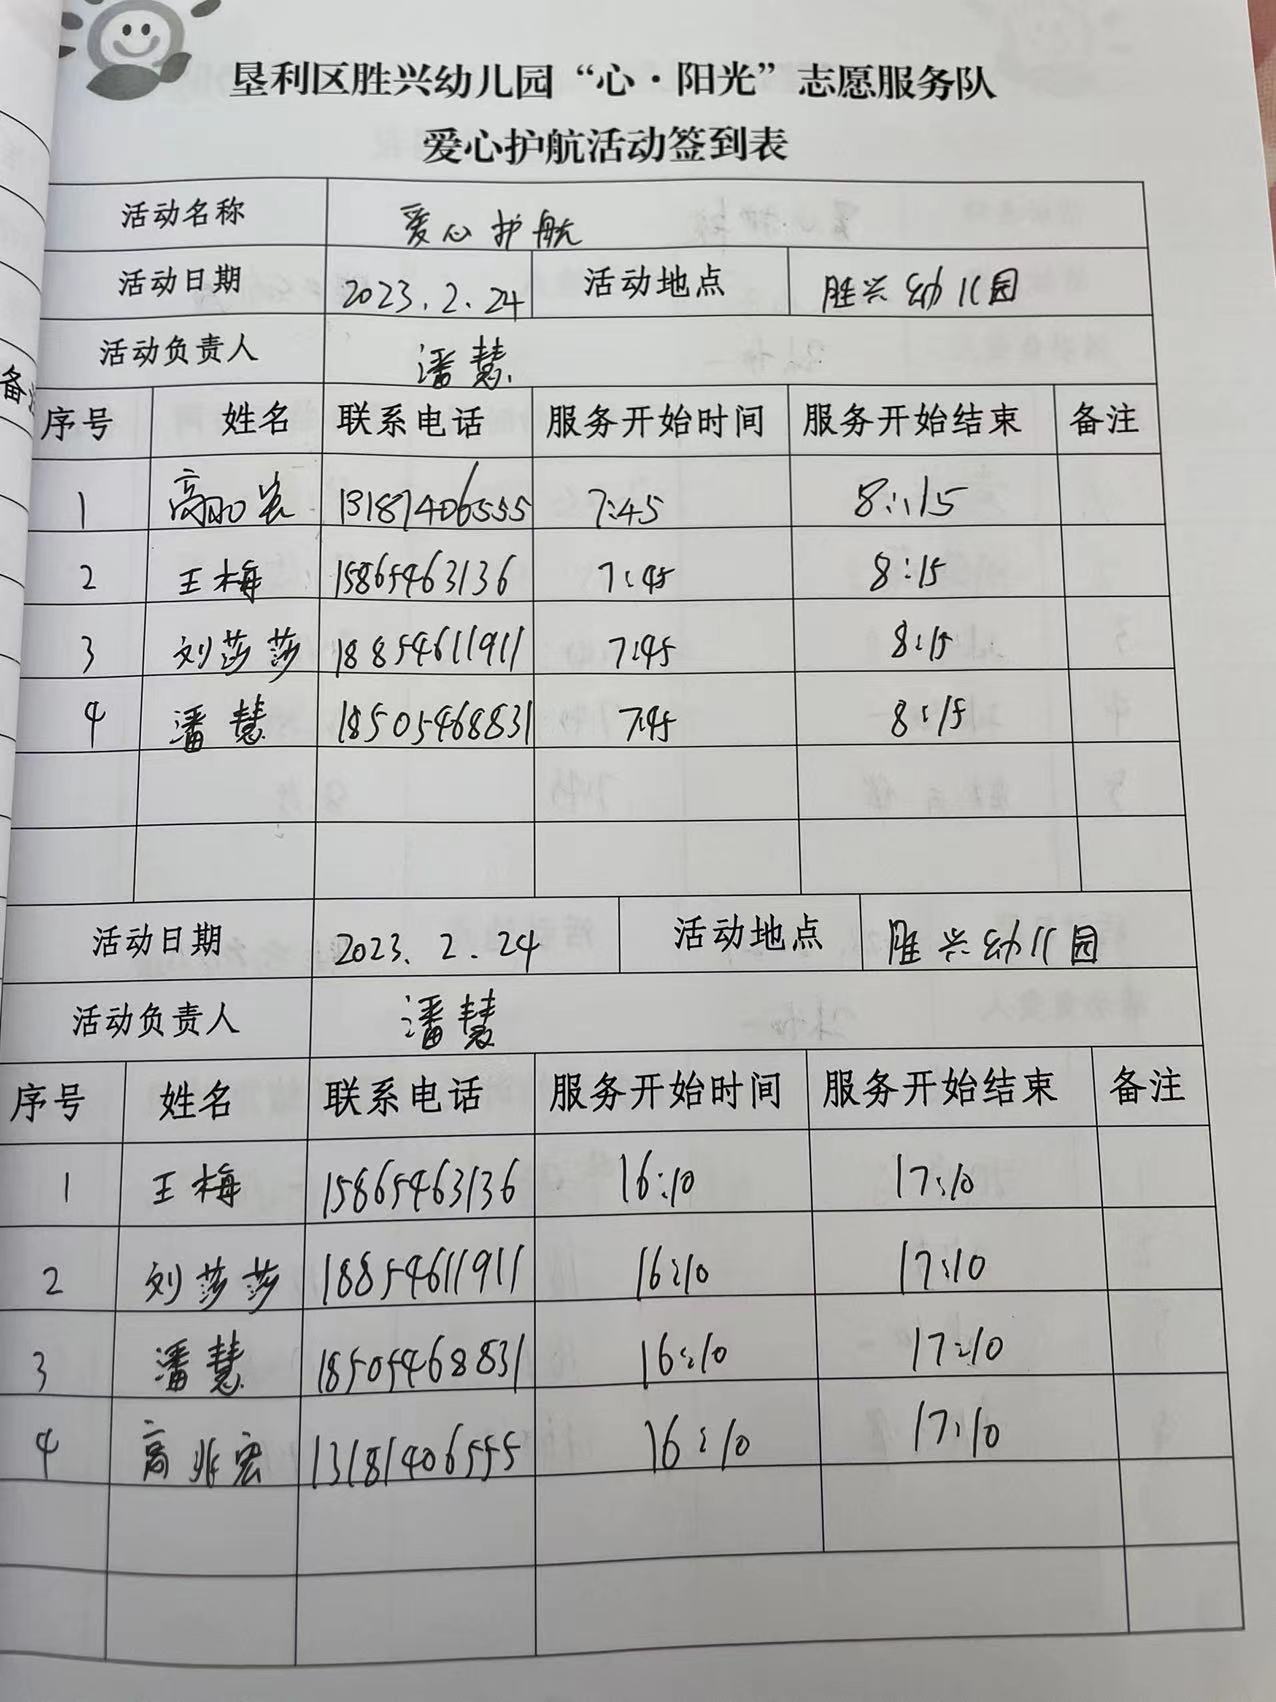 垦利区胜兴幼儿园“心·阳光”志愿服务队
爱心护航活动签到表
活动名称 爱心护航
活动日期 2023.2.24 活动地点 胜兴幼儿园
活动负责人 潘慧
序号 姓名 联系电话 服务开始时间 服务开始结束 备注
1 高 13187406555 7:45 8:15
2 王梅 15865463136 7:45 8:15
3 刘莎莎 18854611911 7:45 8:15
4 潘慧 18505468831 7:45 8:15
活动日期 2023.2.24 活动地点 胜兴幼儿园
活动负责人 潘慧
序号 姓名 联系电话 服务开始时间 服务开始结束 备注
1 王梅 15865463136 16:10 17:10
2 刘莎莎 18854611911 16:10 17:10
3 潘慧 18505468831 16:10 17:10
4 高兆宏 13181406555 16:10 17:10
备